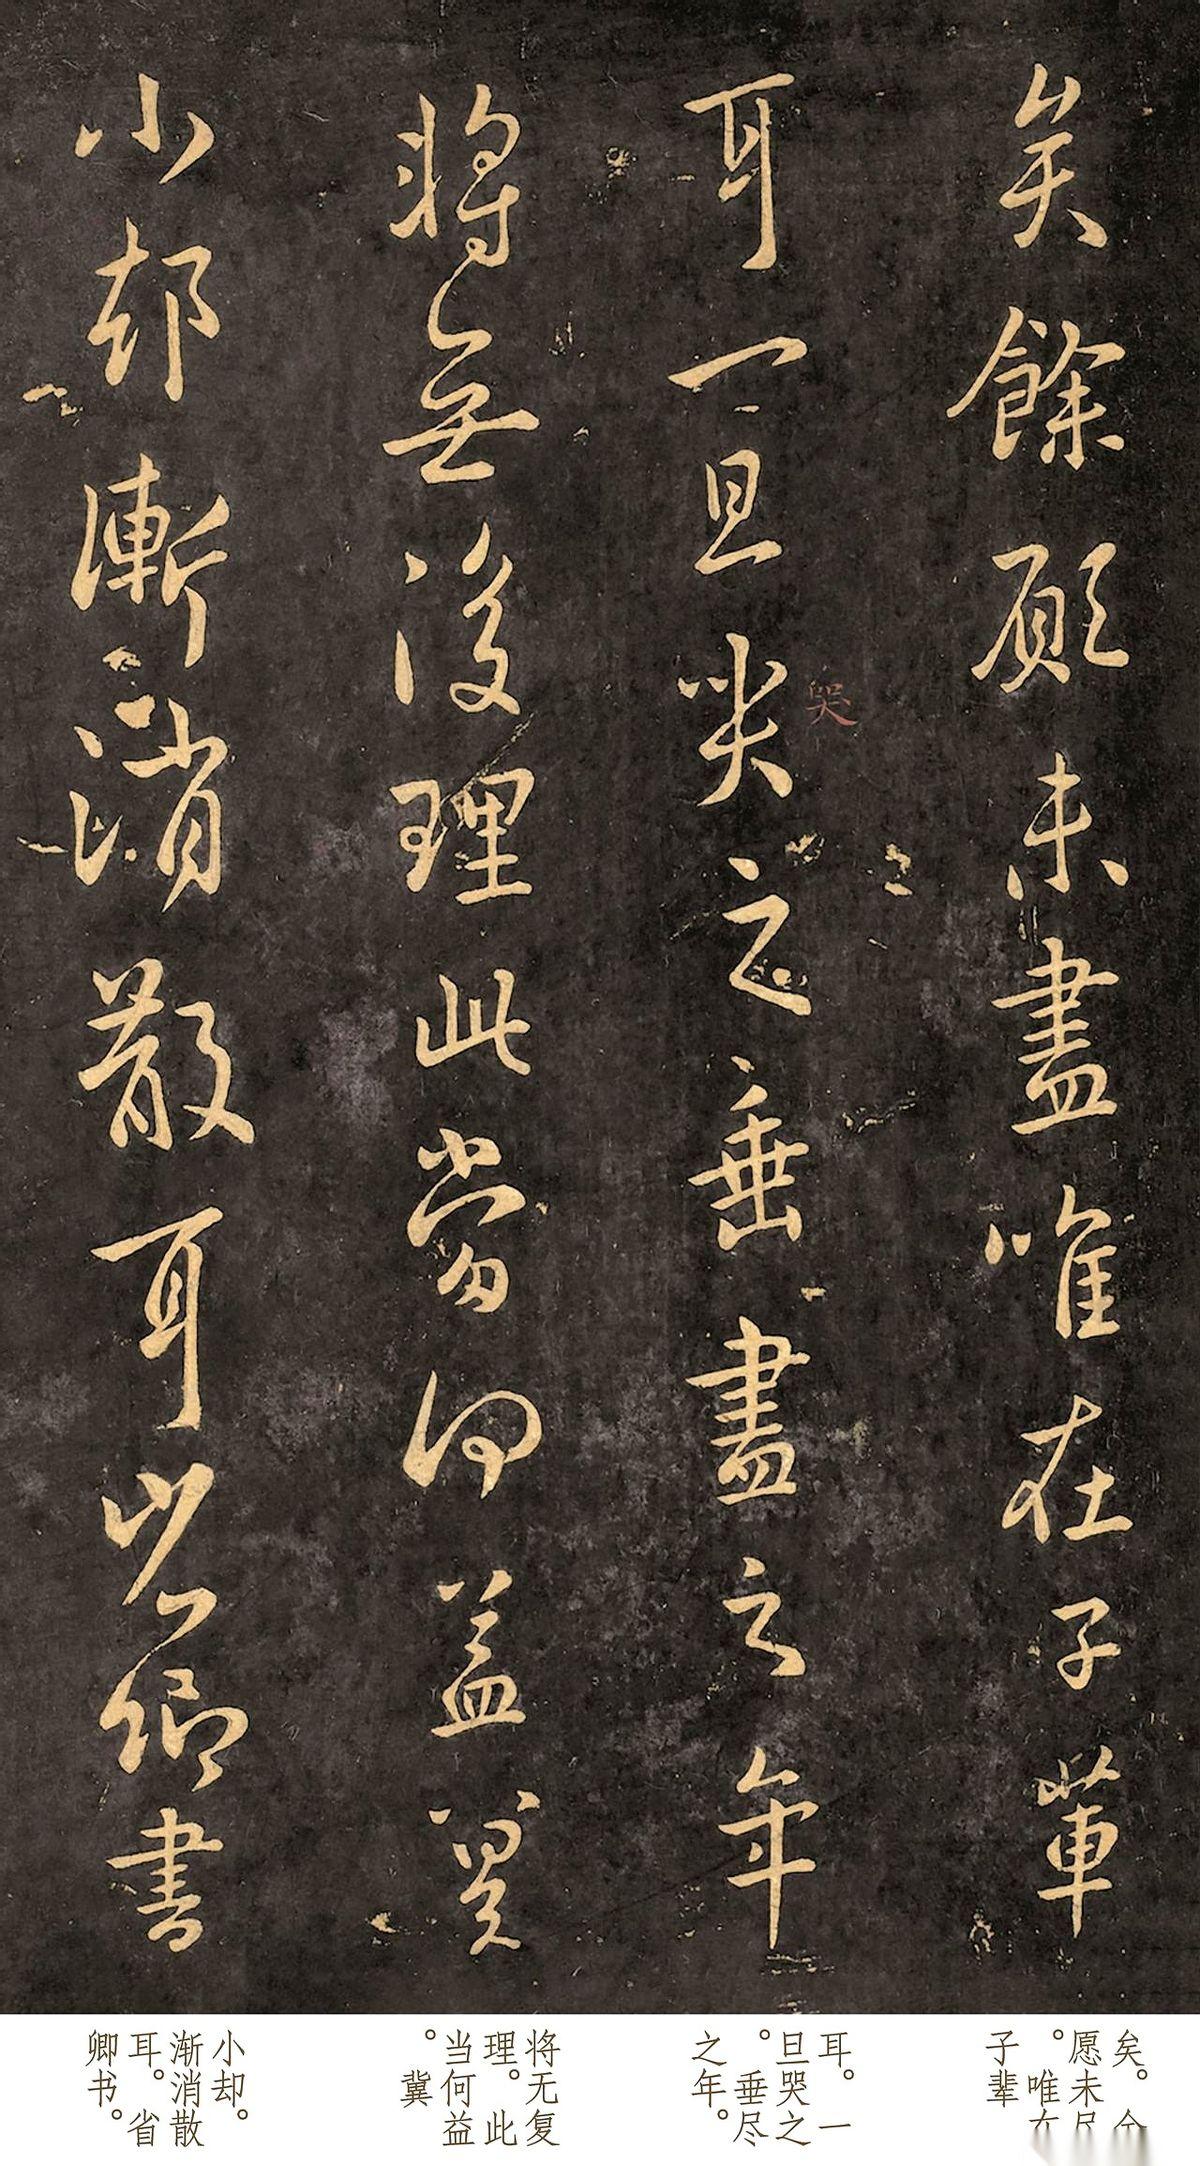 矣餘願未盡唯在子輩
耳一旦哭之垂盡之年
將無復理此當何益冀
小却漸消散耳省卿書
哭
矣。余
愿未尽
。唯在
子辈
耳。一
旦哭之
。垂尽
之年。
将无复
理。此
当何益
。冀
小却。
渐消散
耳。省
卿书。